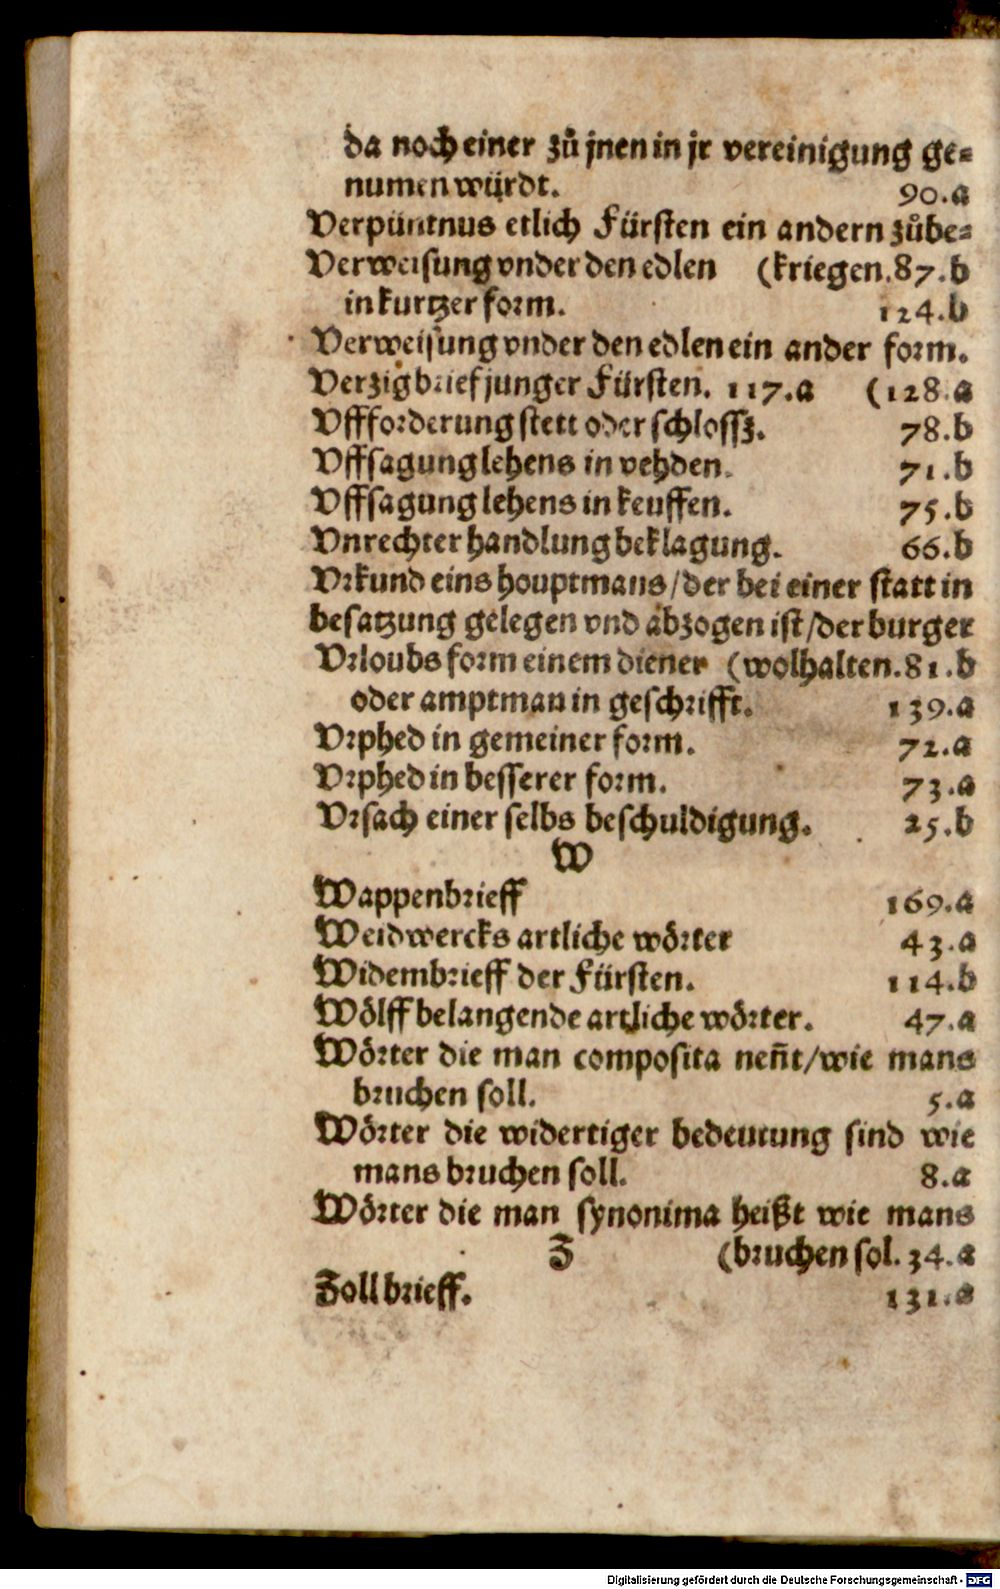 da noch einer zů jnen in jr vereinigung ge⸗
numen würdt. 90.a
Verpüntnus etlich Fürsten ein andern zůbe⸗
Verweisung vnder den edlen (kriegen.87.b
in kurtzer form. 124.b
Verweisung vnder den edlen ein ander form.
Verzigbrief junger Fürsten. 117.a (128.a
Vffforderung stett oder schlossz. 78.b
Vffsagung lehens in vehden. 71.b
Vffsagung lehens in keuffen. 75.b
Vnrechter handlung beklagung. 66.b
Vrkund eins houptmans/der bei einer statt in
besatzung gelegen vnd abzogen ist/der burger
Vrloubs form einem diener (wolhalten.81.b
oder amptman in geschrifft. 139.a
Vrphed in gemeiner form. 72.a
Vrphed in besserer form. 73.a
Vrsach einer selbs beschuldigung. 25.b
W
Wappenbrieff 169.a
Weidwercks artliche wörter 43.a
Widembrieff der Fürsten. 114.b
Wölff belangende artliche wörter. 47.a
Wörter die man composita neñt/wie mans
bruchen soll. 5.a
Wörter die widertiger bedeutung sind wie
mans bruchen soll. 8.a
Wörter die man synonima heißt wie mans
Z (bruchen sol. 34.a
Zoll brieff. 131.a
Digitalisierung gefördert durch die Deutsche Forschungsgemeinschaft - DFG